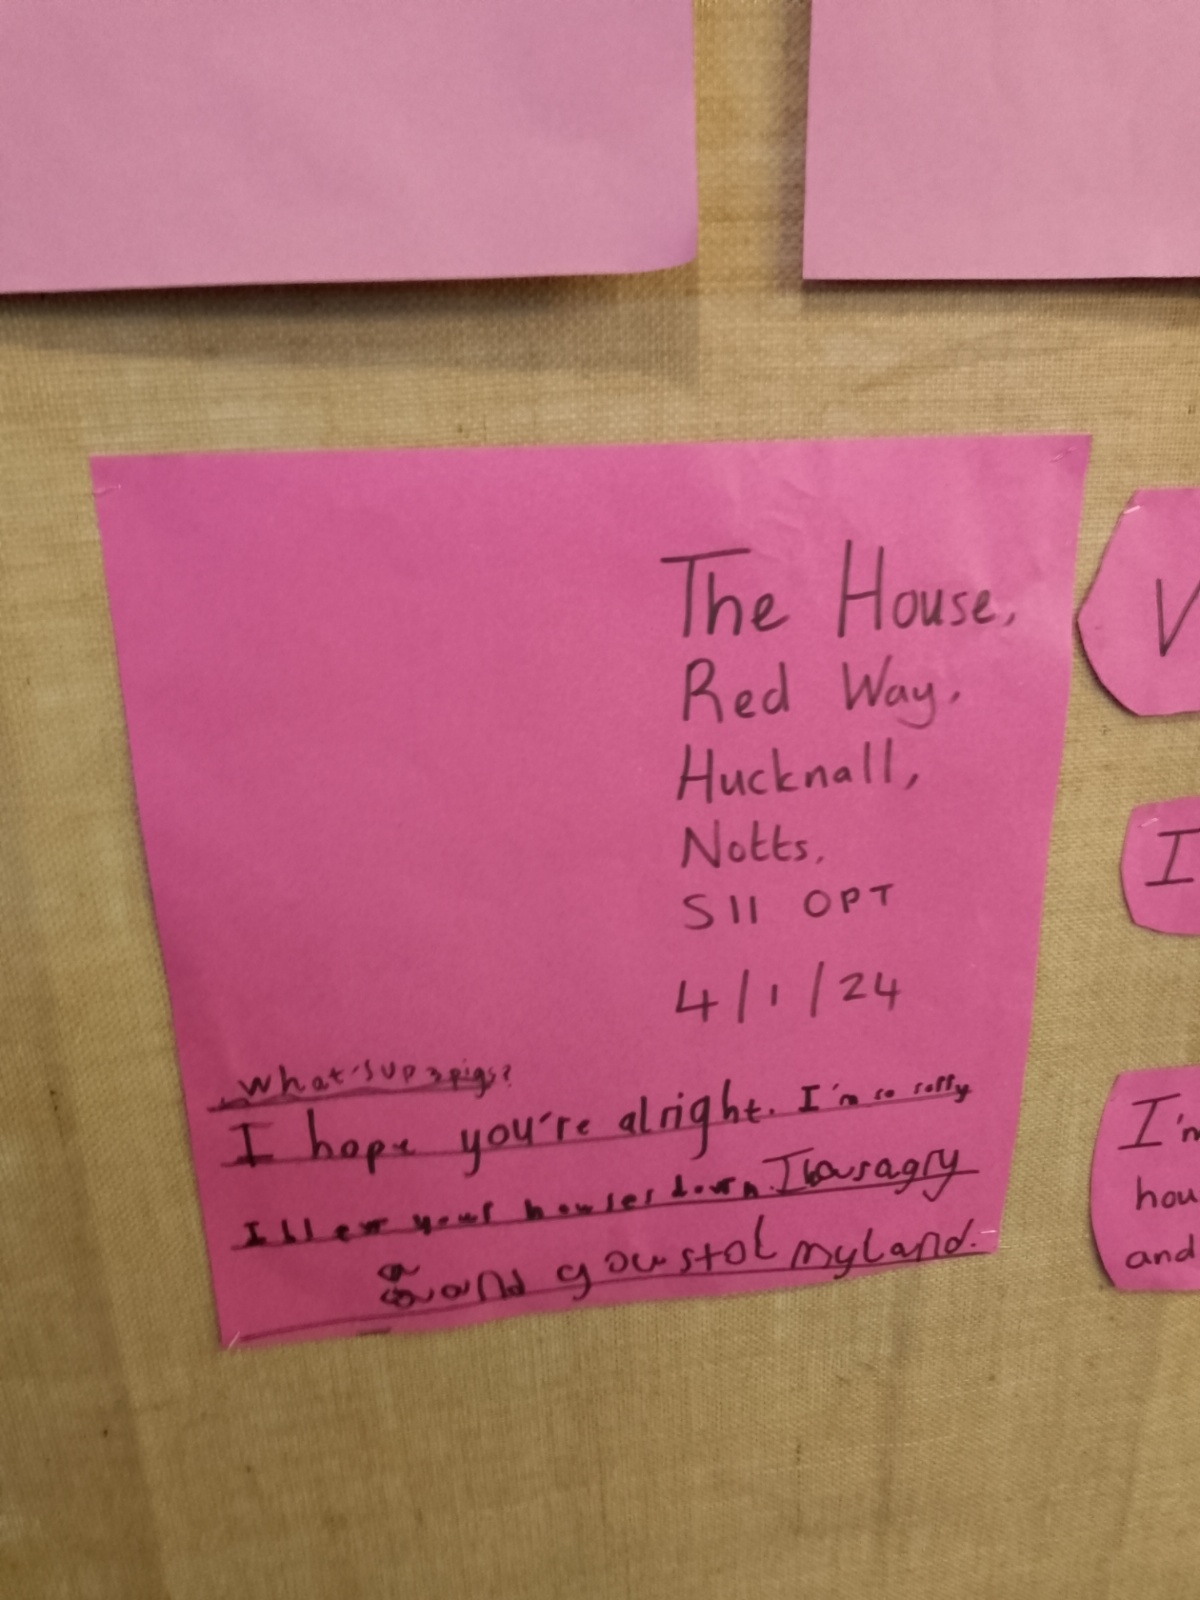 The House,
Red Way,
Hucknall,
Notts,
S11 OPT
4/1/24
What's up 3 pigs?
I hope you're alright. I'm so sorry
I blew your houses down. I was agry
and you stol my land.
V
I
I'm
hou
and